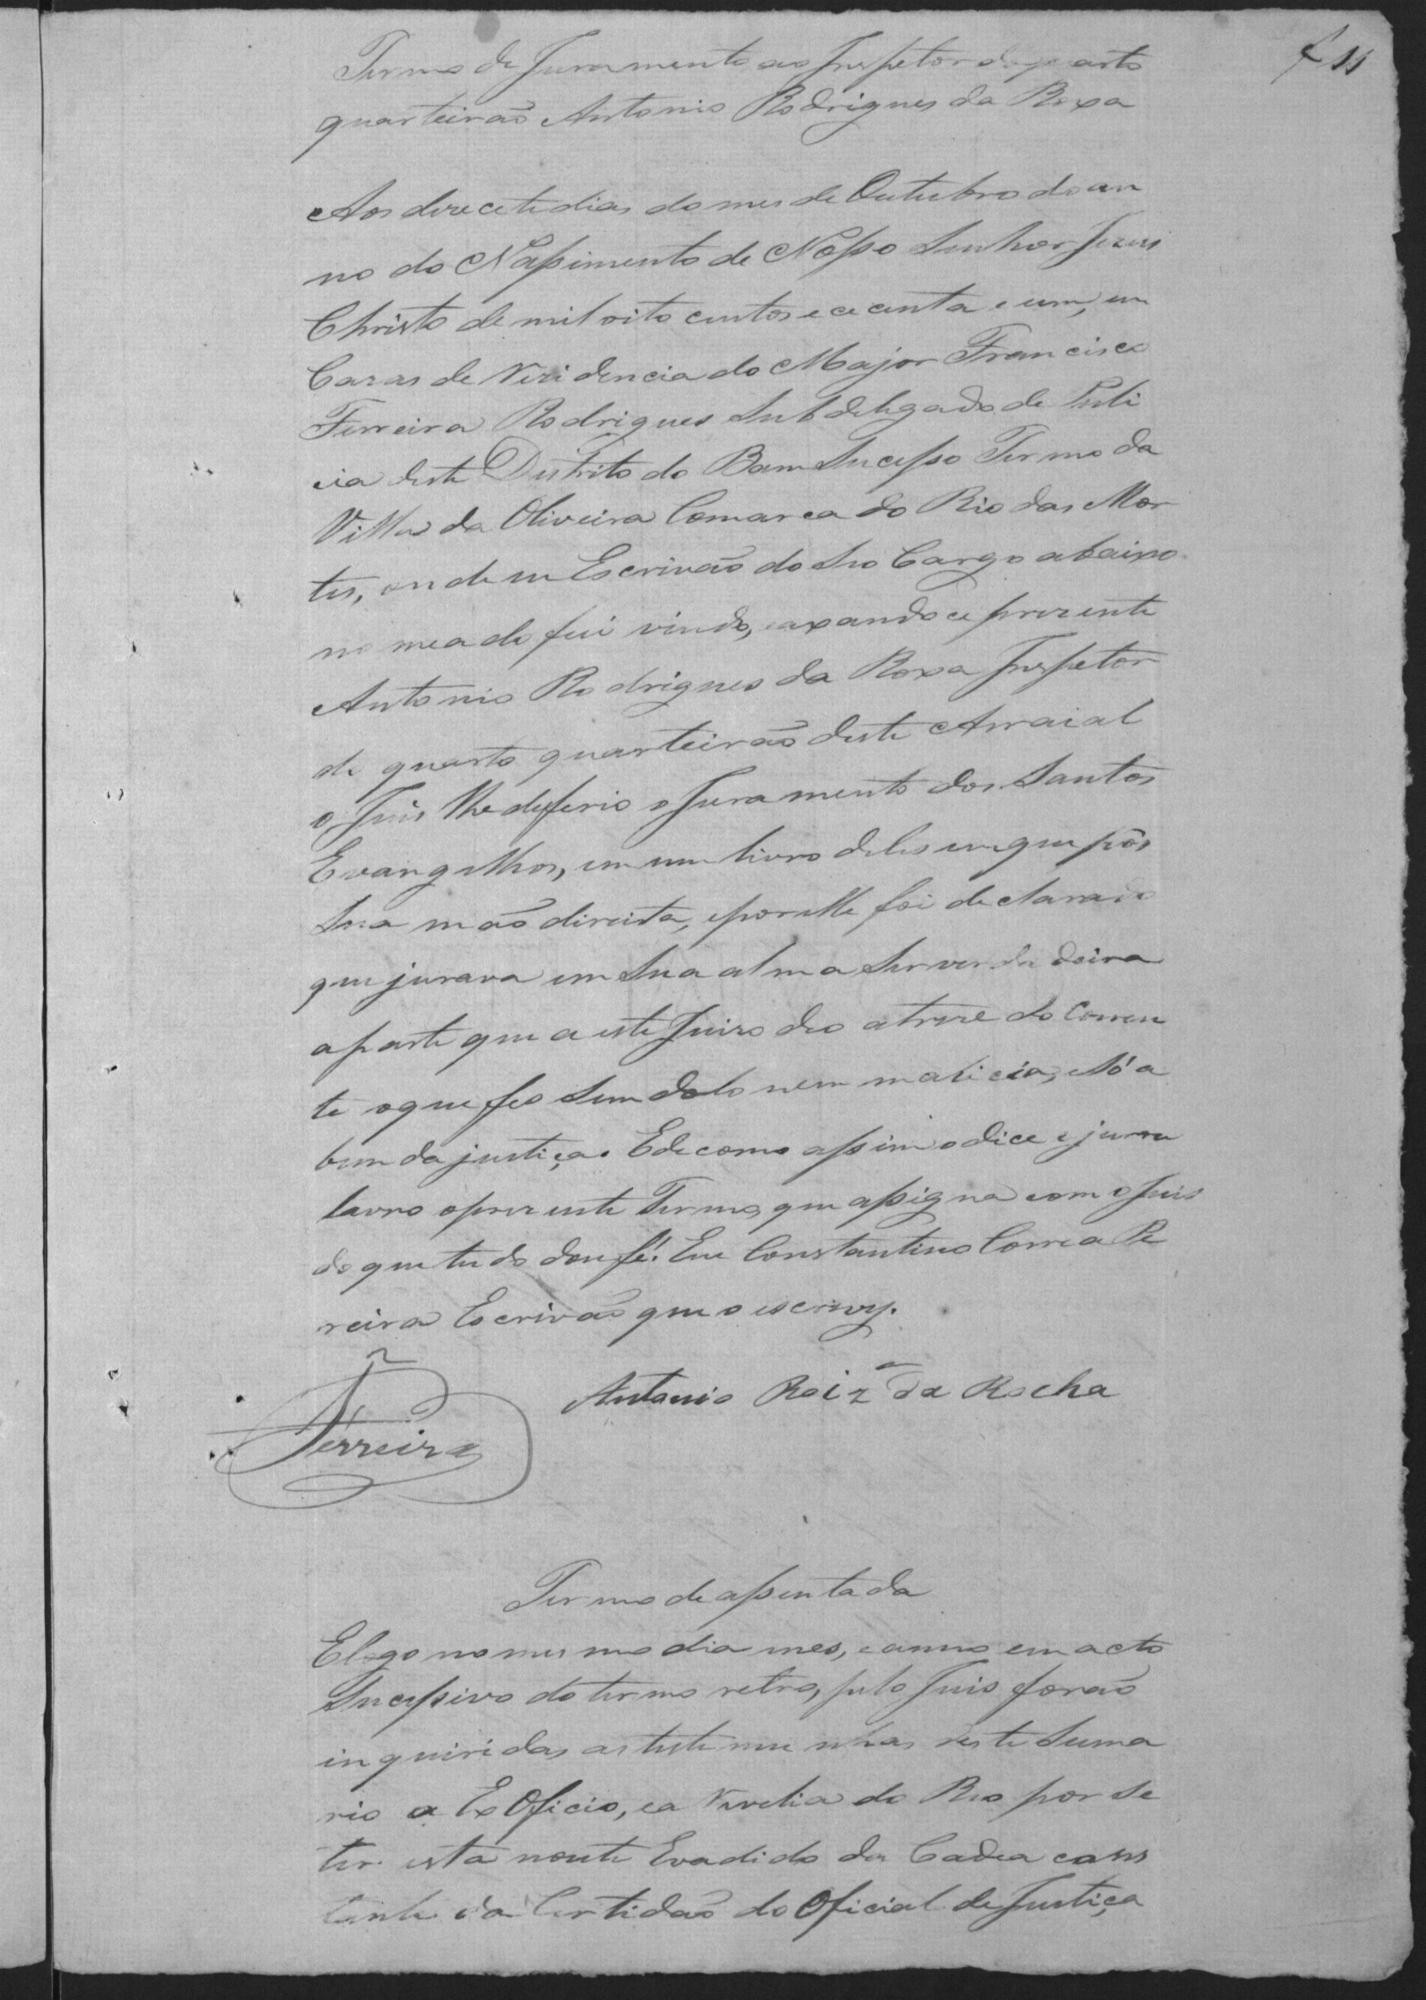 f 11
Termo de Juramento ao Inspetor do quarto
quarteirão Antonio Rodrigues da Roxa
Aos dezecete dias do mes de Outubro do an
no do Nassimento de Nosso Senhor Jezus
Christo de mil oito centos e cecenta e um, em
Cazas de rezidencia do Major Francisco
Ferreira Rodrigues Subdelegado de Puli
cia deste Distrito do Bom Sucesso Termo da
Villa da Oliveira Comarca do Rio das Mor
tes, onde eu Escrivão do seo Cargo abaixo
nomeado fui vindo, e axandoce prezente
Antonio Rodrigues da Roxa Inspetor
do quarto quarteirão deste Arraial
o Juis lhe deferio o Juramento dos Santos
Evangelhos, em um livro deles em que pôs
sua mão direita, e por elle foi declarado
que jurava em sua alma ser verdadeira
a parte que a este Juizo deo a treze do Corren
te o que fes sem dolo nem malicia, e só a
bem da justiça. E de como assim o dice e jurou
lavro o prezente Termo, que assigna com o Juis
do que tudo dou fé. Eu Constantino Correa Pe
reira Escrivão que o escrevy.
Antonio Roiz da Rocha
Ferreira
Termo de assentada
E logo no mesmo dia mes, e anno em acto
Sucessivo do termo retro, pelo Juis forão
inquiridas as testemunhas neste Suma
rio a Ex Oficio, e a revelia do Reo por se
ter esta noute Evadido da Cadea cons
tante da Certidão do Oficial de Justiça